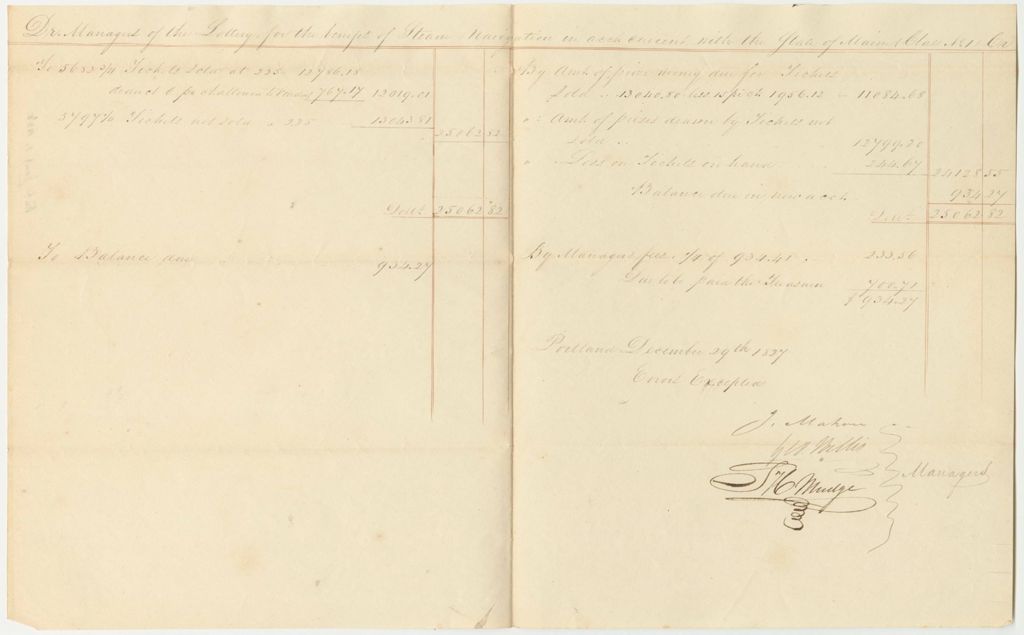 Dr. Managers of the Lottery for the benefit of Steam Navigation in acct current with the State of Maine (Class No. 1) Cr
To 5682 3/4 Tickets sold at 225 12786.18
deduct 6 pr ct allowance to vendors 767.17 12019.01
5797 Tickets not sold " 225 13043.81
25062 82
Doll.s 25062 82
To Balance due 934.27
By Amt of prize money due for Tickets
Sold .. 13040.80 less 15 pr ct 1956.12 - 11084.68
" Amt of prizes drawn by Tickets not
sold .. 12799.20
" Loss on Tickets on hand 244.67
24128 55
Balance due in new acct. 934 27
Doll.s 25062 82
By Managers fees 1/4 of 934.41 .. 233.56
Due to be paid the Treasurer 700.71
$ 934.27
Portland December 29th 1827
Errors Excepted
J. Mahon
Willis
Mudge
Managers